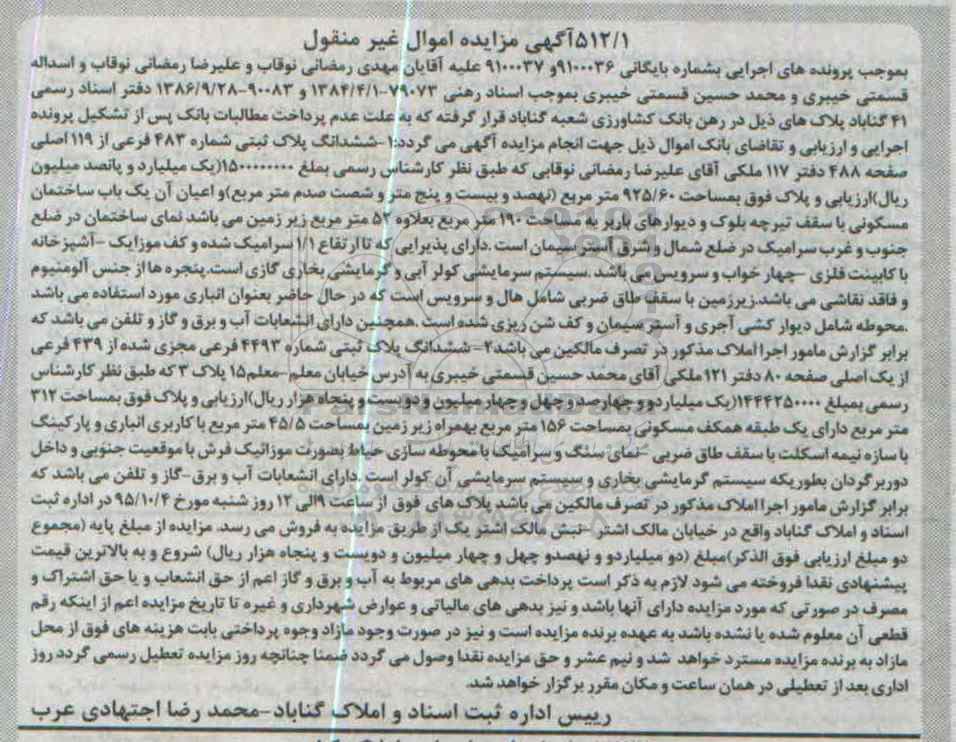 ۵۱۲/۱آگهی مزایده اموال غیر منقول
بموجب پرونده های اجرایی بشماره بایگانی ۹۱۰۰۰۳۶و ۹۱۰۰۰۳۷ علیه آقایان مهدی رمضانی نوقاب و علیرضا رمضانی نوقاب و اسداله
قسمتی خیبری و محمد حسین قسمتی خیبری بموجب اسناد رهنی ۷۹۰۷۳-۱۳۸۴/۴/۱ و ۹۰۰۸۳-۱۳۸۶/۹/۲۸ دفتر اسناد رسمی
۴۱ گناباد پلاک های ذیل در رهن بانک کشاورزی شعبه گناباد قرار گرفته که به علت عدم پرداخت مطالبات بانک پس از تشکیل پرونده
اجرایی و ارزیابی و تقاضای بانک اموال ذیل جهت انجام مزایده آگهی می گردد:۱-ششدانگ پلاک ثبتی شماره ۴۸۳ فرعی از ۱۱۹ اصلی
صفحه ۴۸۸ دفتر ۱۱۷ ملکی آقای علیرضا رمضانی نوقابی که طبق نظر کارشناس رسمی بملغ ۱۵۰۰۰۰۰۰۰۰(یک میلیارد و پانصد میلیون
ریال)ارزیابی و پلاک فوق بمساحت ۹۲۵/۶۰ متر مربع (نهصد و بیست و پنج متر و شصت صدم متر مربع)و اعیان آن یک باب ساختمان
مسکونی با سقف تیرچه بلوک و دیوارهای باربر به مساحت ۱۹۰ متر مربع بعلاوه ۵۲ متر مربع زیر زمین می باشد نمای ساختمان در ضلع
جنوب و غرب سرامیک در ضلع شمال و شرق آستر سیمان است .دارای پذیرایی که تا ارتفاع ۱/۱ سرامیک شده و کف موزایک -آشپزخانه
با کابینت فلزی -چهار خواب و سرویس می باشد .سیستم سرمایشی کولر آبی و گرمایشی بخاری گازی است.پنجره ها از جنس آلومنیوم
و فاقد نقاشی می باشد.زیرزمین با سقف طاق ضربی شامل هال و سرویس است که در حال حاضر بعنوان انباری مورد استفاده می باشد
.محوطه شامل دیوار کشی آجری و آستر سیمان و کف شن ریزی شده است .همچنین دارای انشعابات آب و برق و گاز و تلفن می باشد که
برابر گزارش مامور اجرا املاک مذکور در تصرف مالکین می باشد۲-ششدانگ پلاک ثبتی شماره ۴۴۹۳ فرعی مجزی شده از ۴۳۹ فرعی
از یک اصلی صفحه ۸۰ دفتر ۱۲۱ ملکی آقای محمد حسین قسمتی خیبری به آدرس خیابان معلم-معلم۱۵ پلاک ۳ که طبق نظر کارشناس
رسمی بمبلغ ۱۴۴۴۲۵۰۰۰۰(یک میلیارد و چهارصد و چهل و چهار میلیون و دویست و پنجاه هزار ریال)ارزیابی و پلاک فوق بمساحت ۳۱۲
متر مربع دارای یک طبقه همکف مسکونی بمساحت ۱۵۶ متر مربع بهمراه زیر زمین بمساحت ۴۵/۵ متر مربع با کاربری انباری و پارکینگ
با سازه نیمه اسکلت با سقف طاق ضربی -نمای سنگ و سرامیک با محوطه سازی حیاط بصورت موزائیک فرش با موقعیت جنوبی و داخل
دوربرگردان بطوریکه سیستم گرمایشی بخاری و سیستم سرمایشی آن کولر است .دارای انشعابات آب و برق-گاز و تلفن می باشد که
برابر گزارش مامور اجرا املاک مذکور در تصرف مالکین می باشد پلاک های فوق از ساعت ۹الی ۱۲ روز شنبه مورخ ۹۵/۱۰/۴ در اداره ثبت
اسناد و املاک گناباد واقع در خیابان مالک اشتر -نبش مالک اشتر یک از طریق مزایده به فروش می رسد. مزایده از مبلغ پایه (مجموع
دو مبلغ ارزیابی فوق الذکر)مبلغ (دو میلیاردو و نهصدو چهل و چهار میلیون و دویست و پنجاه هزار ریال) شروع و به بالاترین قیمت
پیشنهادی نقدا فروخته می شود لازم به ذکر است پرداخت بدهی های مربوط به آب و برق و گاز اعم از حق انشعاب و یا حق اشتراک و
مصرف در صورتی که مورد مزایده دارای آنها باشد و نیز بدهی های مالیاتی و عوارض شهرداری و غیره تا تاریخ مزایده اعم از اینکه رقم
قطعی آن معلوم شده یا نشده باشد به عهده برنده مزایده است و نیز در صورت وجود مازاد وجوه پرداختی بابت هزینه های فوق از محل
مازاد به برنده مزایده مسترد خواهد شد و نیم عشر و حق مزایده نقدا وصول می گردد ضمنا چنانچه روز مزایده تعطیل رسمی گردد روز
اداری بعد از تعطیلی در همان ساعت و مکان مقرر برگزار خواهد شد.
رییس اداره ثبت اسناد و املاک گناباد-محمد رضا اجتهادی عرب